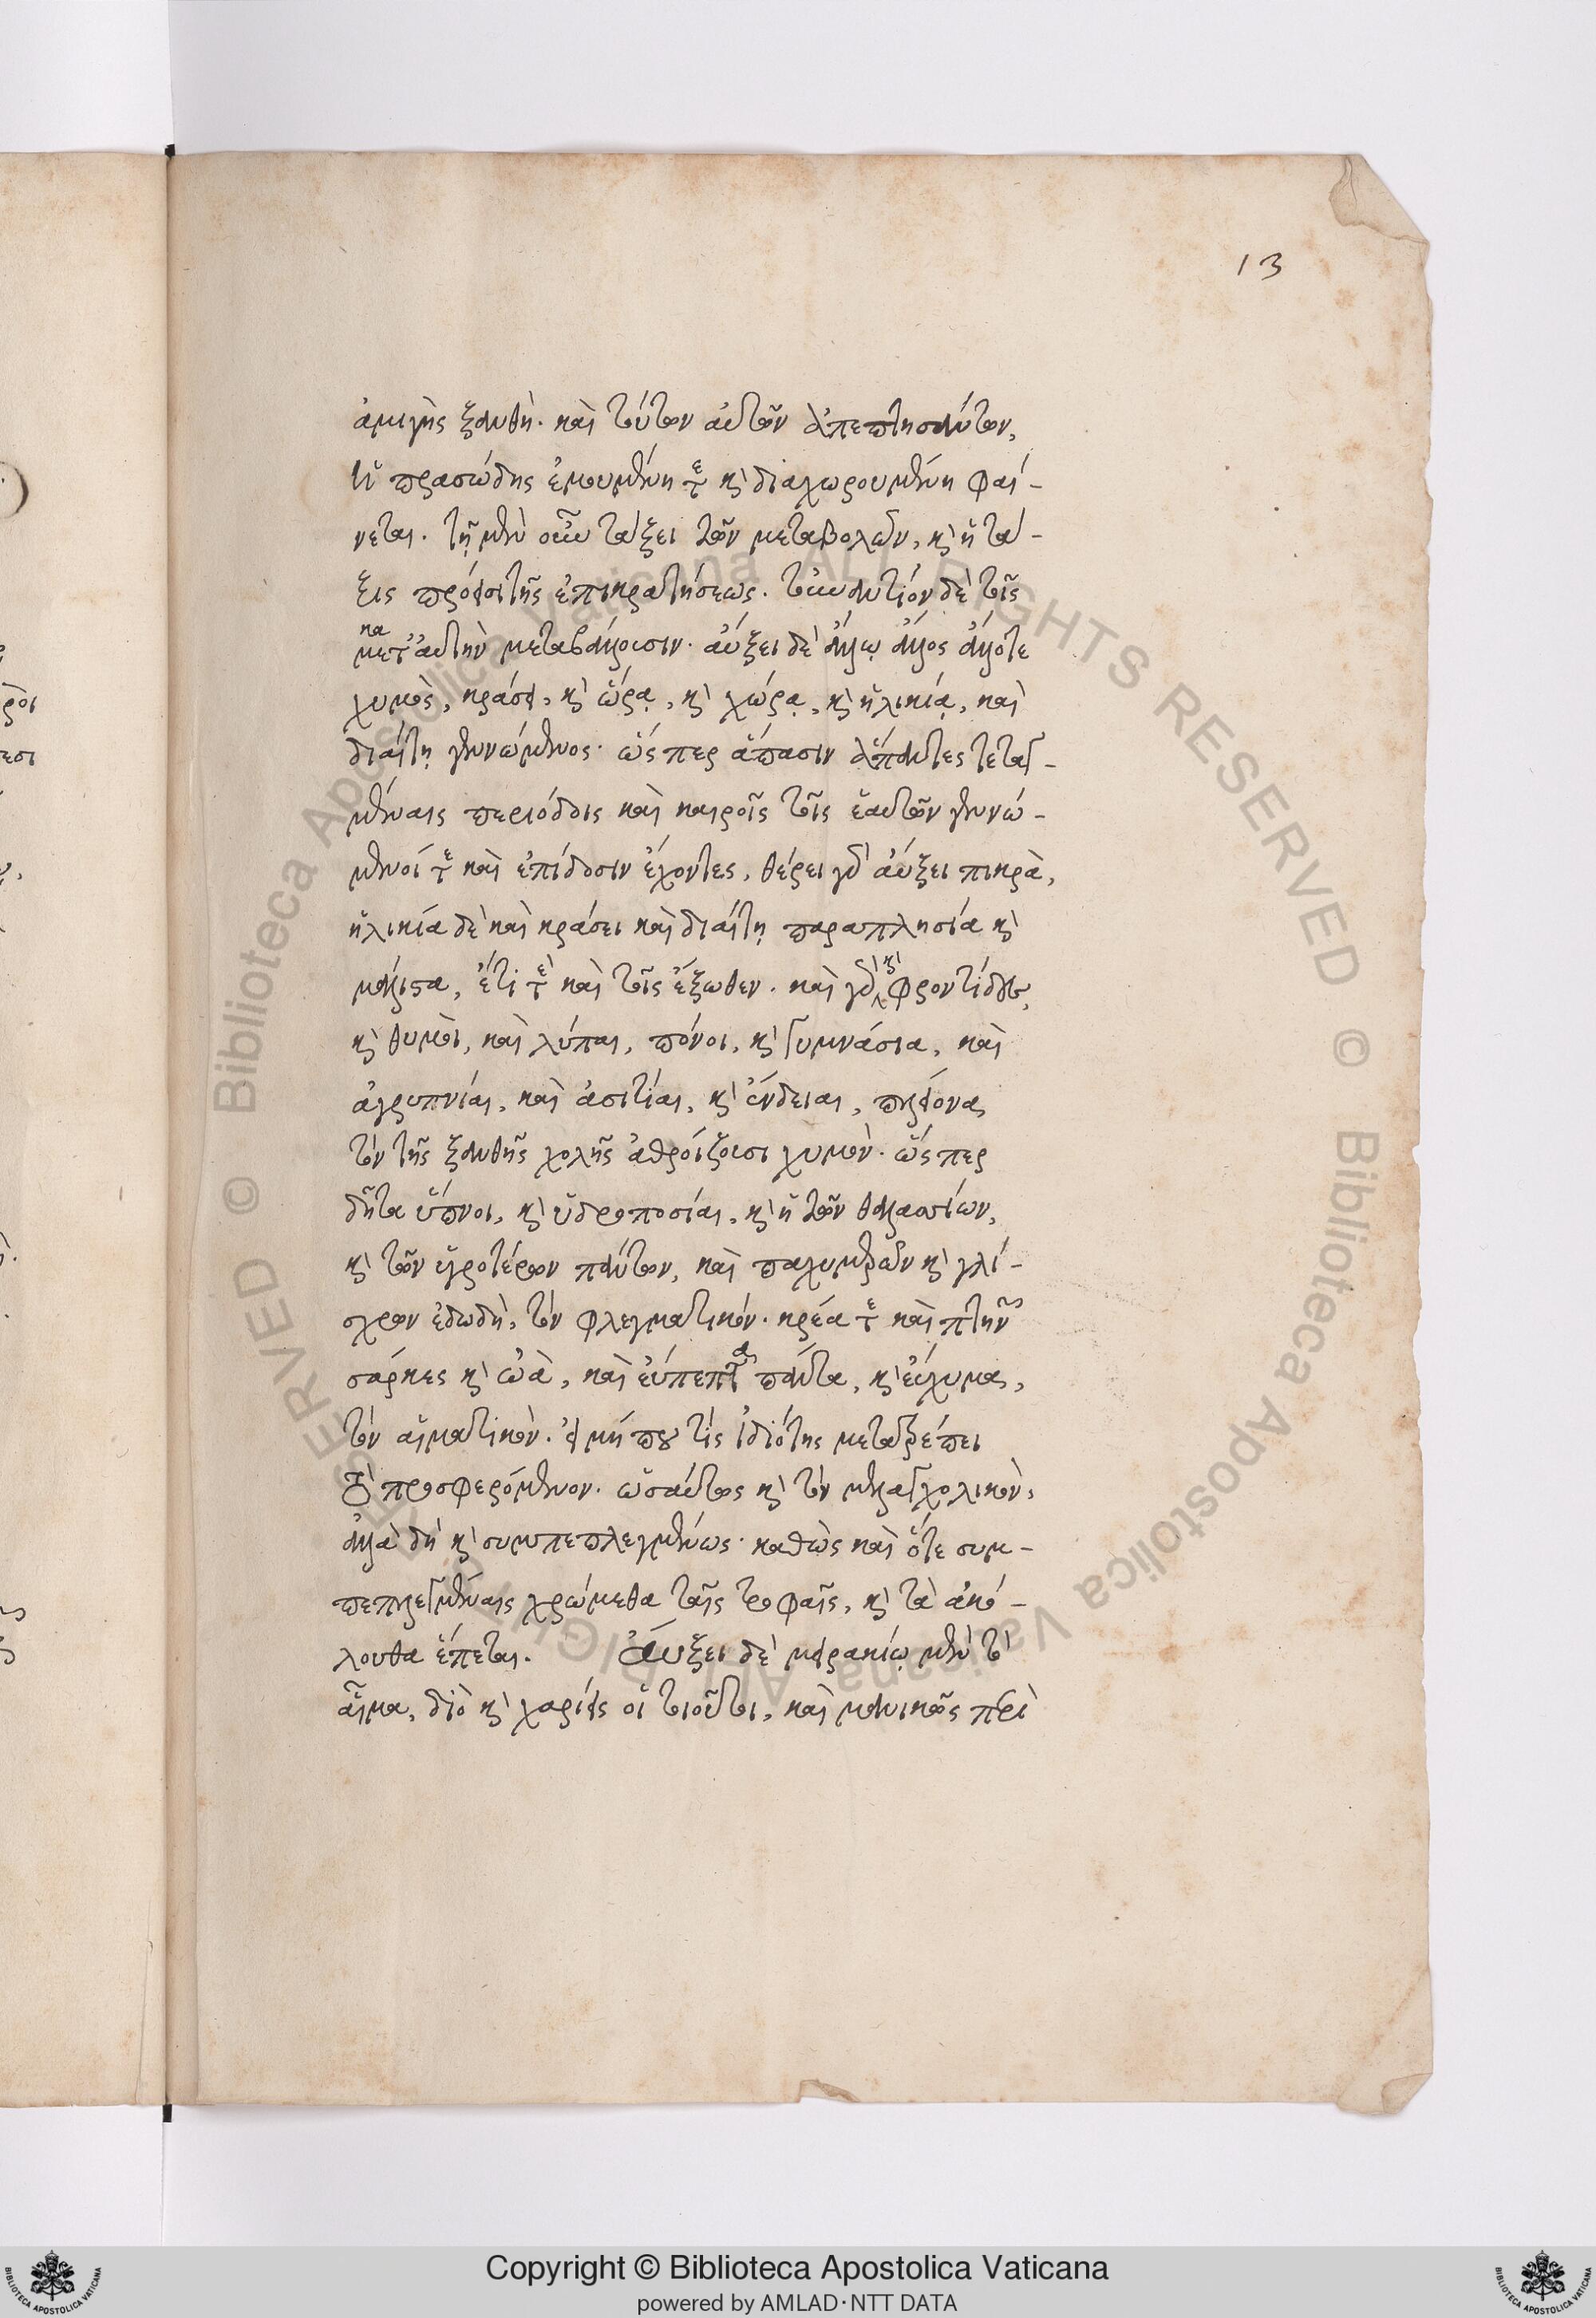 13
ἀμιγὴς ξανθή. καὶ τούτων αὐτῶν ἀπεπτησάντων,
ἡ πρασώδης ἐμουμένη τε κ̀ διαχωρουμένη φαί-
νεται. τῇ μὲν οὖν τάξει τῶν μεταβολῶν, κ̀ ἡ τά-
ξις πρόσεισι τῆς ἐπικρατήσεως. τοὐναντίον δὲ τοῖς
κα
μετ' αὐτὴν μεταβάλλουσιν. αὔξει δὲ ἄλλῳ ἄλλος ἄλλοτε
χυμὸς, κράσει, κ̀ ὥρᾳ, κ̀ χώρᾳ, κ̀ ἡλικίᾳ, καὶ
διαίτῃ γεννώμενος. ὥσπερ ἅπασιν ἅπαντες τεταγ-
μέναις περιόδοις καὶ καιροῖς τοῖς ἑαυτῶν γεννώ-
μενοί τε καὶ ἐπίδοσιν ἔχοντες, θέρει γὰρ αὔξει πικρὰ,
ἡλικία δὲ καὶ κράσει καὶ διαίτῃ παραπλησία κ̀
μάλιστα, ἔτι τὲ καὶ τοῖς ἔξωθεν. καὶ γὰρ κ̀ φροντίδες,
κ̀ θυμοὶ, καὶ λύπαι, πόνοι, κ̀ γυμνάσια, καὶ
ἀγρυπνίαι, καὶ ἀσιτίαι, κ̀ ἔνδειαι, πλείονα
τὸν τῆς ξανθῆς χολῆς ἀθροίζουσι χυμόν. ὥσπερ
δῆτα ὕπνοι, κ̀ ὑδροποσίαι, κ̀ ἡ τῶν θαλασσίων,
κ̀ τῶν ὑγροτέρων πάντων, καὶ παχυμερῶν κ̀ γλί-
σχρων ἐδωδὴ, τὸν φλεγματικόν. κρέα τε καὶ πτηνῶν
σάρκες κ̀ ὠὰ, καὶ εὔπεπτα πάντα, κ̀ εὔχυμα,
τὸν αἱματικόν. εἰ μή που τὶς ἰδιότης μετατρέπει
τὸ προσφερόμενον. ὡσαύτως κ̀ τὸν μελαγχολικὸν,
ἀλλὰ δὴ κ̀ συμπεπλεγμένως. καθὼς καὶ ὅτε συμ-
πεπλεγμέναις χρώμεθα ταῖς τροφαῖς, κ̀ τὰ ἀκό-
λουθα ἕπεται. Αὔξει δὲ μειρακίῳ μὲν τὸ
αἷμα, διὸ κ̀ χαρίεις οἱ τοιοῦτοι, καὶ μανικῶς περὶ
Copyright © Biblioteca Apostolica Vaticana
powered by AMLAD·NTT DATA